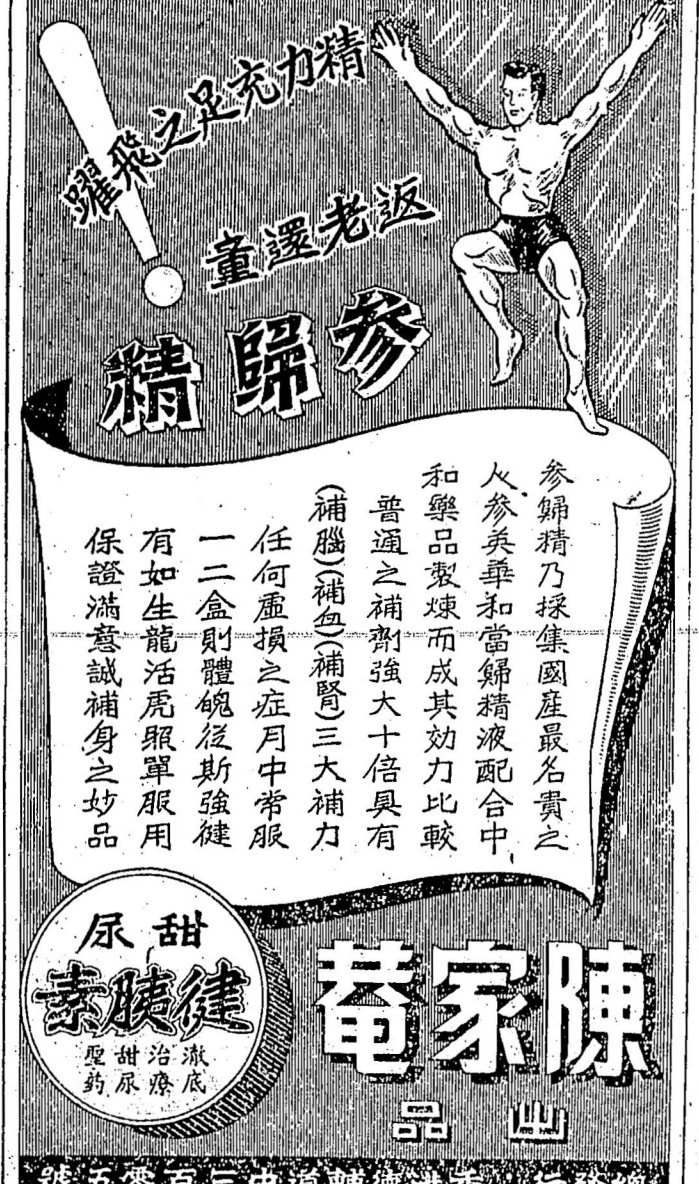 精力充足之飛躍
返老還童
参歸精
参歸精乃採集國産最名貴之
人参英華和當歸精液配合中
和藥品製煉而成其効力比較
普通之補劑強大十倍具有
(補腦)(補血)(補腎)三大補力
任何虛損之症月中常服
一二盒則體魄從斯強徤
有如生龍活虎照單服用
保證滿意誠補身之妙品
甜尿
徤胰素
澈底
治療
甜尿
聖药
陳家菴
出品